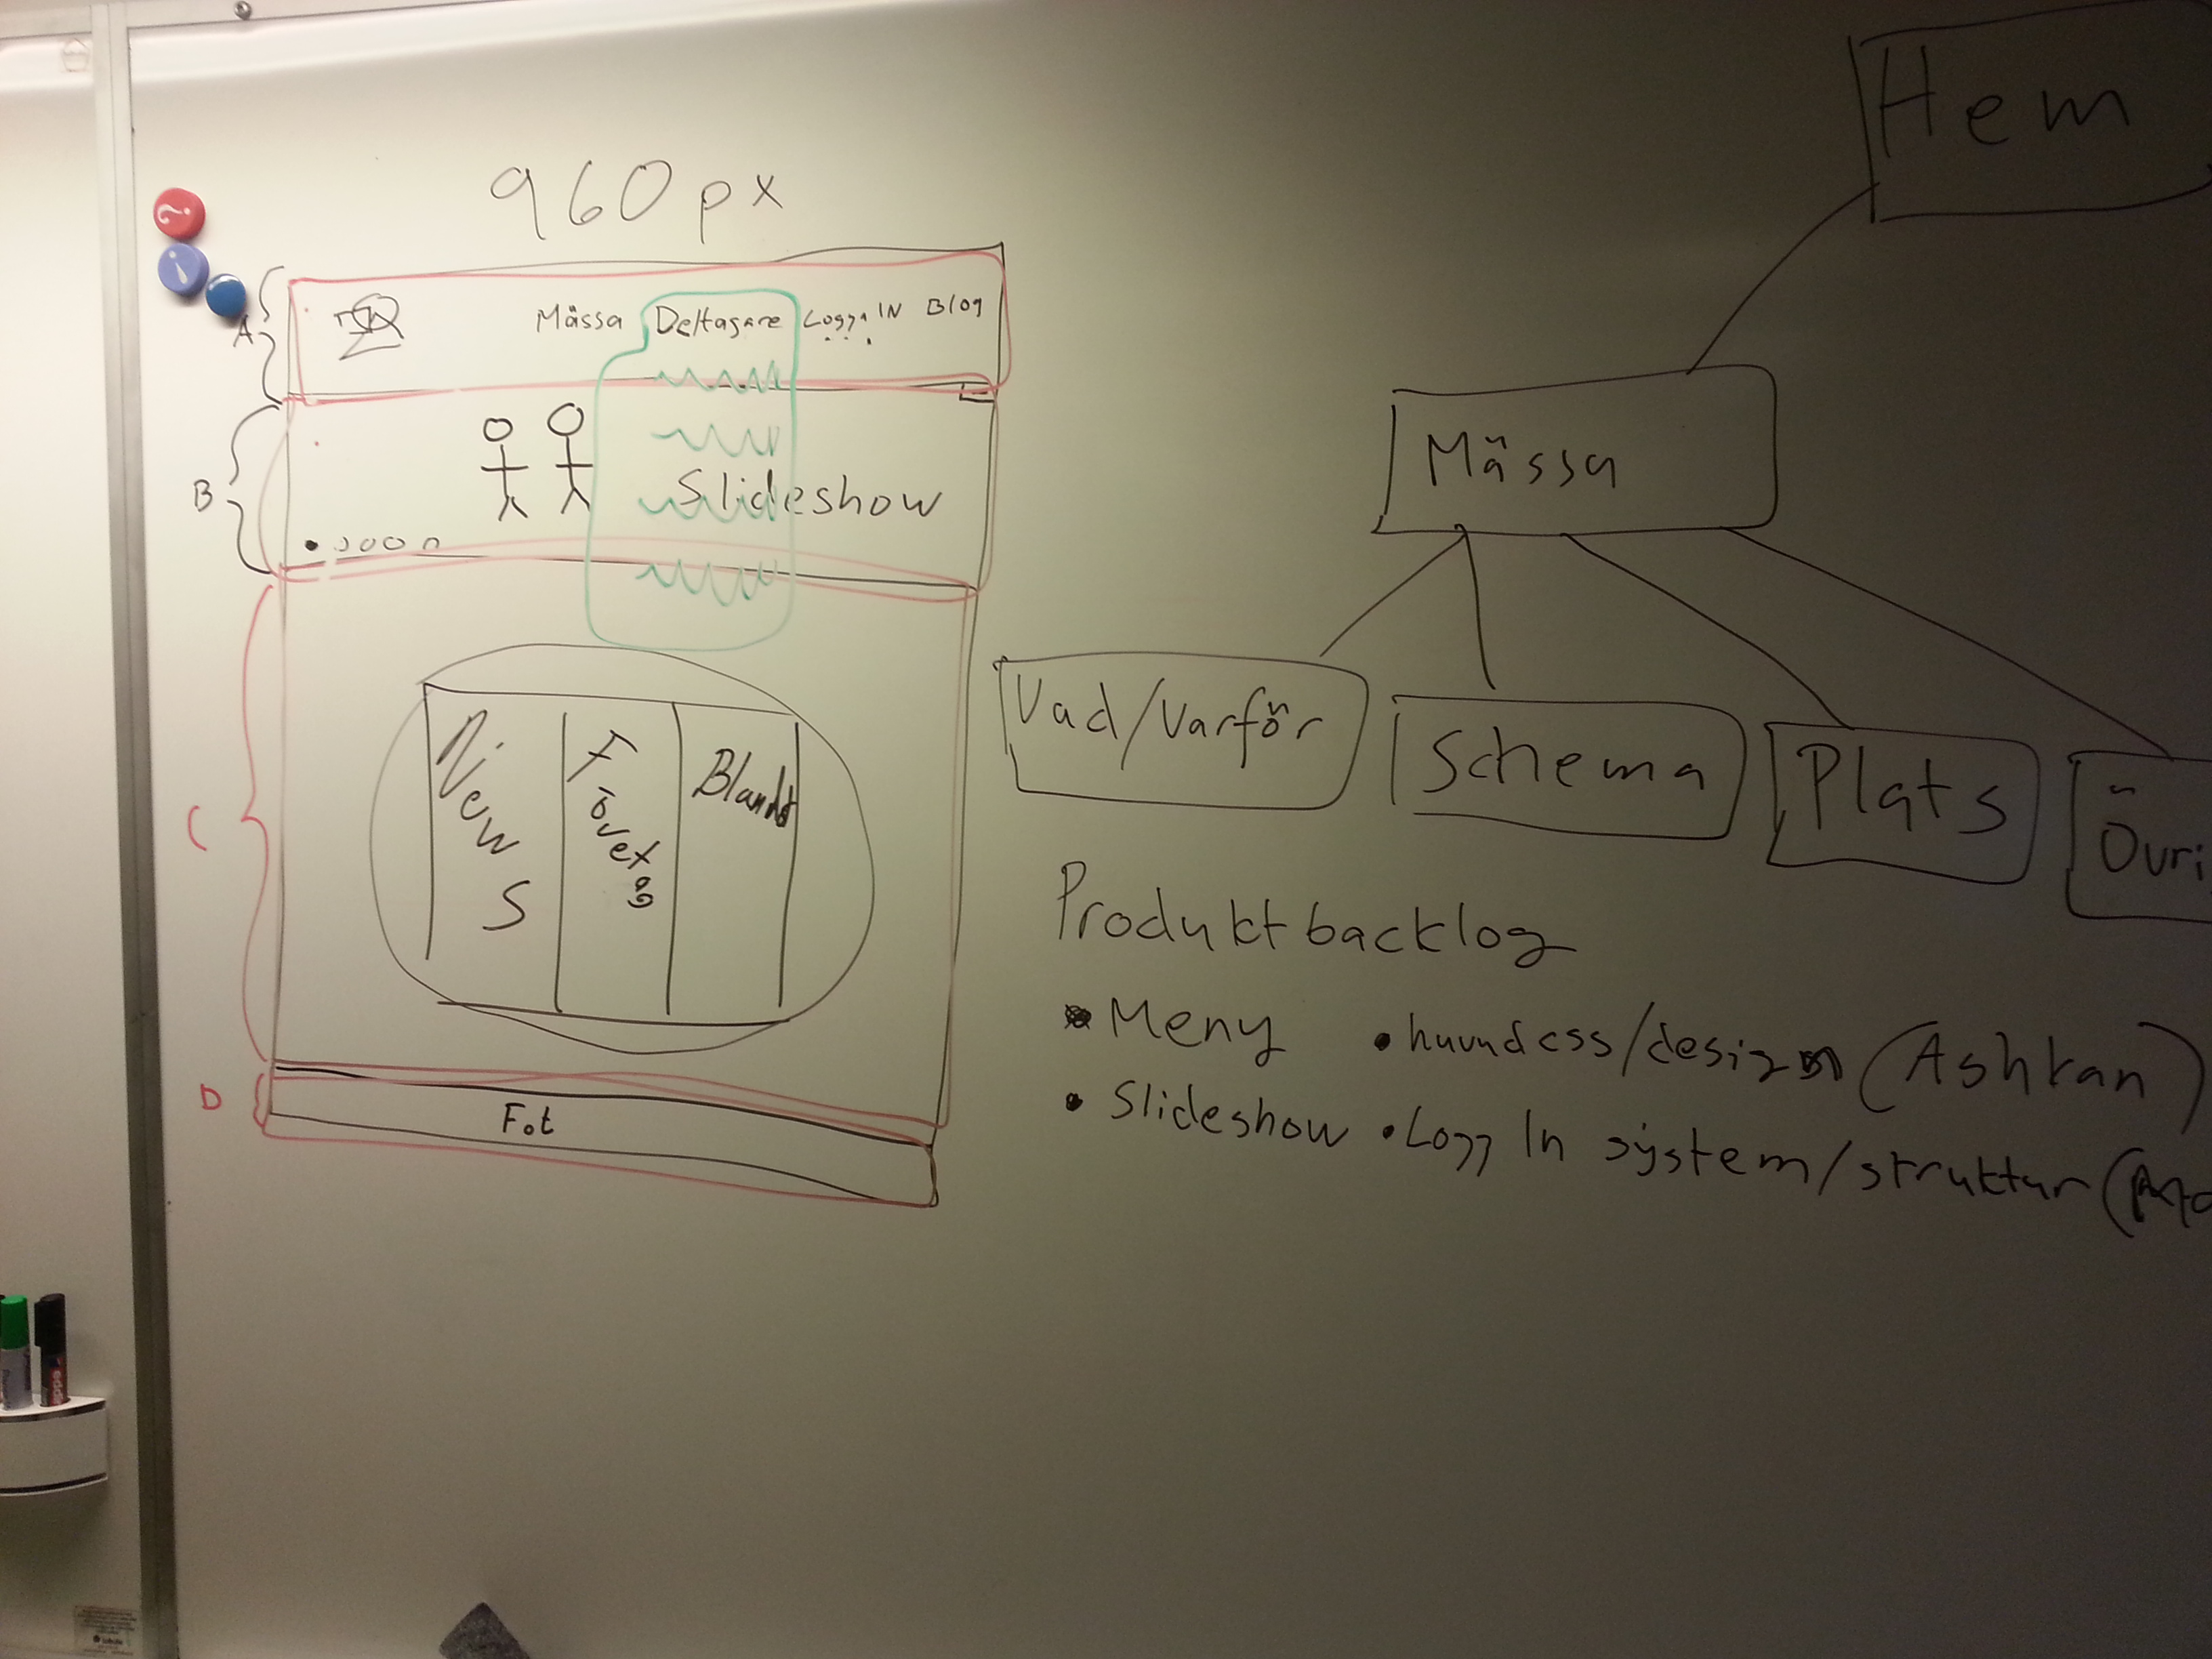 960px
Hem
A
Mässa Deltagare Logga IN Blog
B
Slideshow
Mässa
C
News
Företag
Vad/Varför
Schema
Plats
Övri
Produktbacklog
• Meny • huvudcss/design (Ashkan)
• Slideshow • Logg In system/struktur (
D
Fot